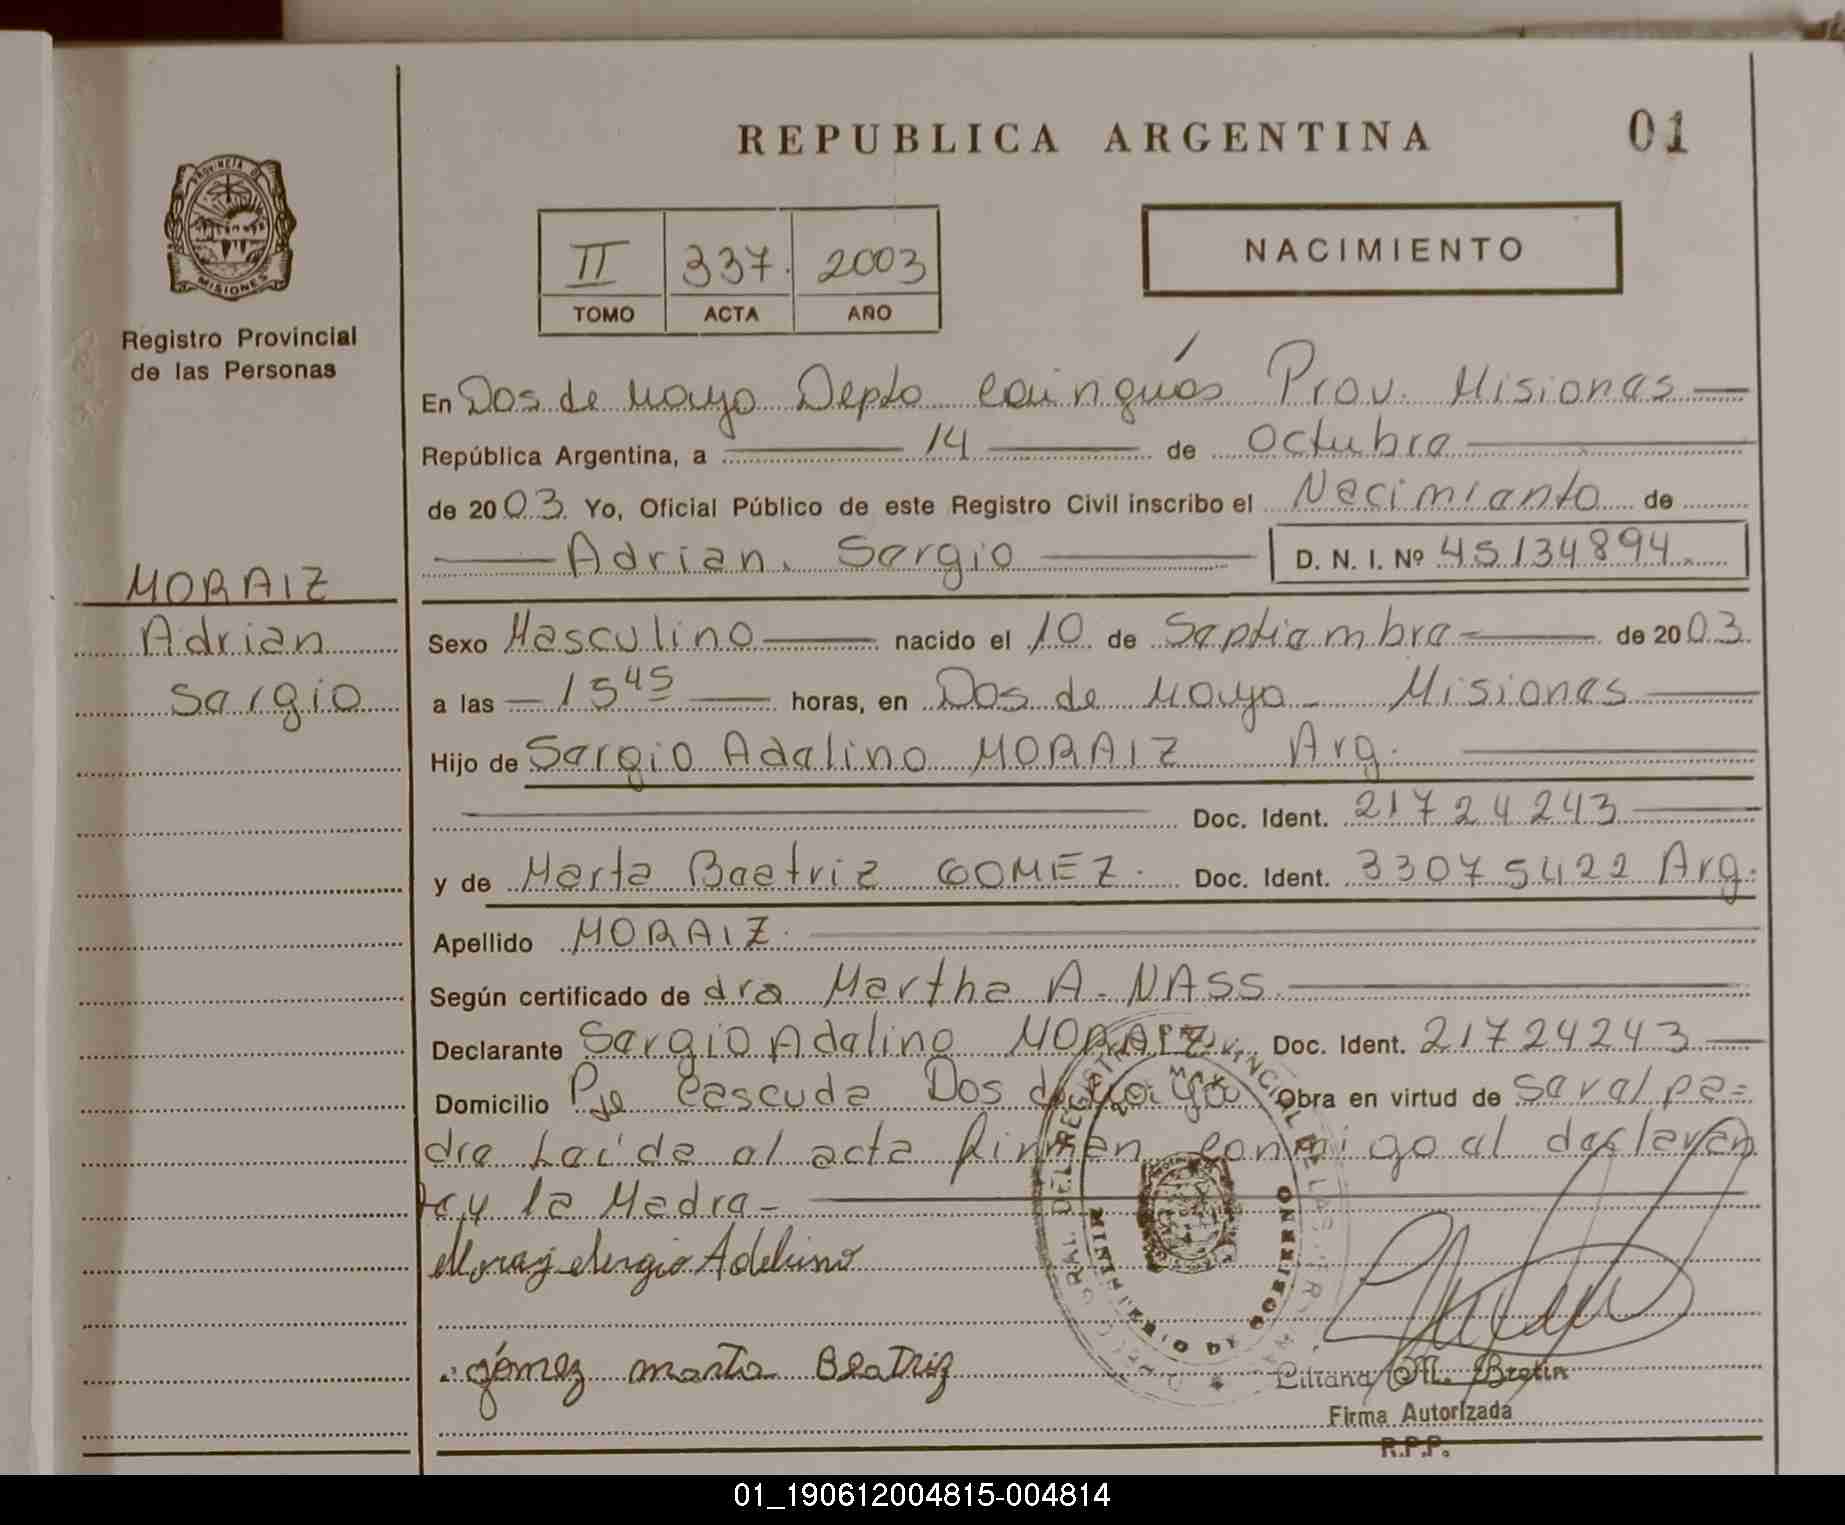 REPUBLICA ARGENTINA
01
PROVINCIA DE
MISIONES
Registro Provincial
de las Personas
II 337 2003
TOMO ACTA AÑO
NACIMIENTO
En Dos de Mayo Depto Cainguás Prov. Misiones
República Argentina, a 14 de Octubre
de 2003 Yo, Oficial Público de este Registro Civil inscribo el Nacimiento de
Adrian Sergio D. N. I. Nº 45134894
MORAIZ
Adrian
Sergio
Sexo Masculino nacido el 10 de Septiembre de 2003
a las 15 45 horas, en Dos de Mayo - Misiones
Hijo de Sergio Adelino MORAIZ Arg.
Doc. Ident. 21724243
y de Marta Beatriz GOMEZ. Doc. Ident. 33075422 Arg.
Apellido MORAIZ.
Según certificado de dra Martha A. NASS
Declarante Sergio Adelino MORAIZ Doc. Ident. 21724243
Domicilio Pje Cascuda Dos de Mayo Obra en virtud de Ser el pa=
dre Leída el acta firman conmigo el declaran
te y la Madre -
Moraiz Sergio Adelino
gómez marta Beatriz
MINISTERIO DE GOBIERNO
Liliana M. Bretin
Firma Autorizada
R.P.P.
01_190612004815-004814